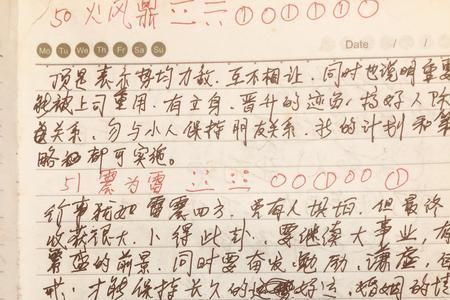 50 火风鼎
Mo Tu We Th Fr Sa Su Date / /
顶是表示势均力敌.互不相让.同时也说明重要
能被上司重用.有立身.晋升的迹象.搞好人际
关系.勿与小人保持朋友关系.我的计划和策
略都可实施。
51 震为雷
行事犹如雷震四方.常有人惧怕.但最终
收获很大.卜得此卦.要继续大事业,有
的前景.同时要奋发勉励.谦虚.
才能保持长久的好运.婚姻的情